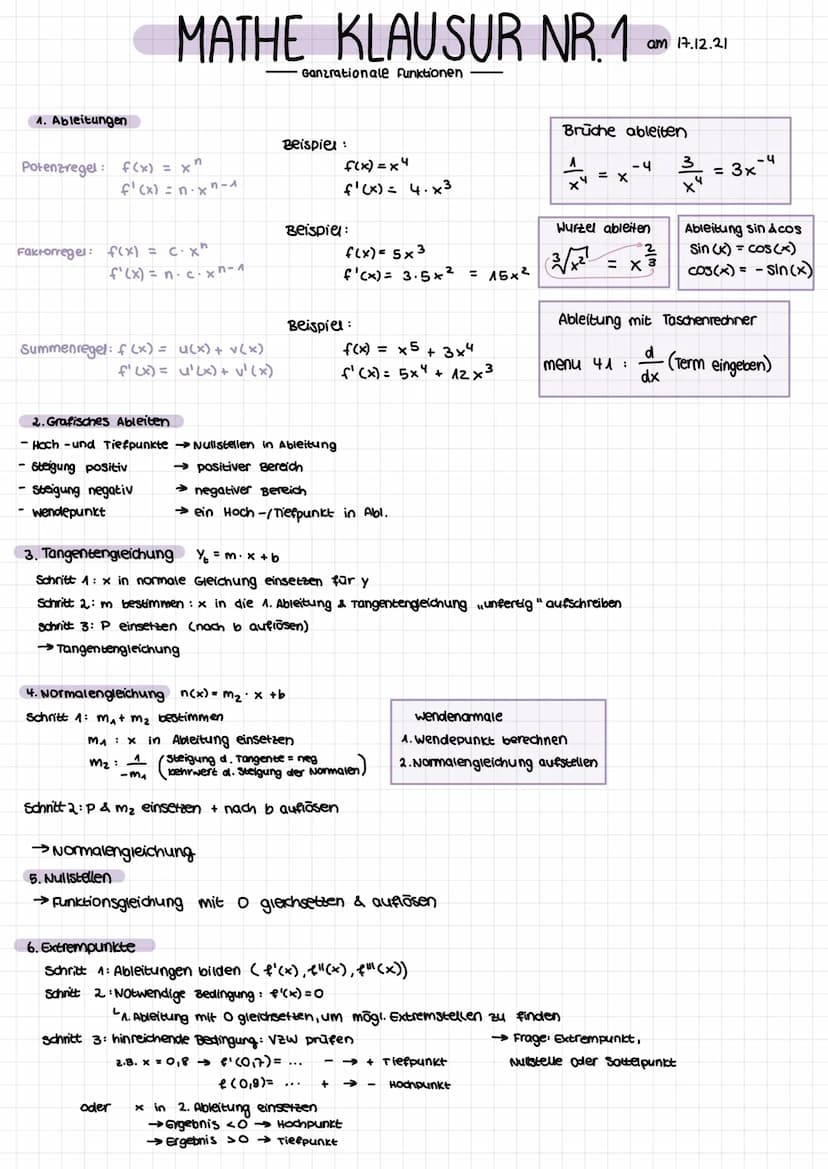 MATHE KLAUSUR NR.1 am 17.12.21
Ganzrationale Funktionen
1. Ableitungen
Potenzregel: f(x) = xⁿ
f'(x) = n·xⁿ⁻¹
Beispiel:
f(x) = x⁴
f'(x) = 4·x³
Brüche ableiten
1/x⁴ = x⁻⁴ 3/x⁴ = 3x⁻⁴
Faktorregel: f(x) = c·xⁿ
f'(x) = n·c·xⁿ⁻¹
Beispiel:
f(x) = 5x³
f'(x) = 3·5x² = 15x²
Wurzel ableiten
³√x² = x^(2/3)
Ableitung sin & cos
sin(x) = cos(x)
cos(x) = - sin(x)
Summenregel: f(x) = u(x) + v(x)
f'(x) = u'(x) + v'(x)
Beispiel:
f(x) = x⁵ + 3x⁴
f'(x) = 5x⁴ + 12x³
Ableitung mit Taschenrechner
menu 41 : d/dx (Term eingeben)
2. Grafisches Ableiten
- Hoch- und Tiefpunkte → Nullstellen in Ableitung
- Steigung positiv → positiver Bereich
- Steigung negativ → negativer Bereich
- Wendepunkt → ein Hoch-/Tiefpunkt in Abl.
3. Tangentengleichung y_t = m·x + b
Schritt 1: x in normale Gleichung einsetzen für y
Schritt 2: m bestimmen: x in die 1. Ableitung & Tangentengleichung „unfertig" aufschreiben
Schritt 3: P einsetzen (nach b auflösen)
→ Tangentengleichung
4. Normalengleichung n(x) = m₂·x + b
Schritt 1: m₁ + m₂ bestimmen
m₁ : x in Ableitung einsetzen
m₂ : 1/-m₁ (Steigung d. Tangente = neg
kehrwert d. Steigung der Normalen)
Schritt 2: P & m₂ einsetzen + nach b auflösen
→ Normalengleichung
Wendenormale
1. Wendepunkt berechnen
2. Normalengleichung aufstellen
5. Nullstellen
→ Funktionsgleichung mit 0 gleichsetzen & auflösen
6. Extrempunkte
Schritt 1: Ableitungen bilden (f'(x), f''(x), f'''(x))
Schritt 2: Notwendige Bedingung: f'(x) = 0
↳ 1. Ableitung mit 0 gleichsetzen, um mögl. Extremstellen zu finden
Schritt 3: hinreichende Bedingung: VZW prüfen
z.B. x = 0,8 → f'(0,7) = ... - → + Tiefpunkt
f(0,9) = ... + → - Hochpunkt
→ Frage: Extrempunkt,
Nullstelle oder Sattelpunkt
oder x in 2. Ableitung einsetzen
→ Ergebnis < 0 → Hochpunkt
→ Ergebnis > 0 → Tiefpunkt